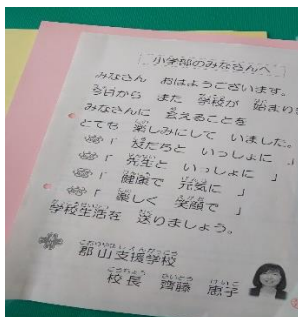 小学部のみなさんへ
みなさん おはようございます。
今日から また 学校が 始まりま
みなさんに 会えることを
とても 楽しみにして いました。
「 友だちと いっしょに 」
「 先生と いっしょに 」
「 健康で 元気に 」
「 楽しく 笑顔で 」
学校生活を 送りましょう。
郡山支援学校
校長 齊藤 恵子